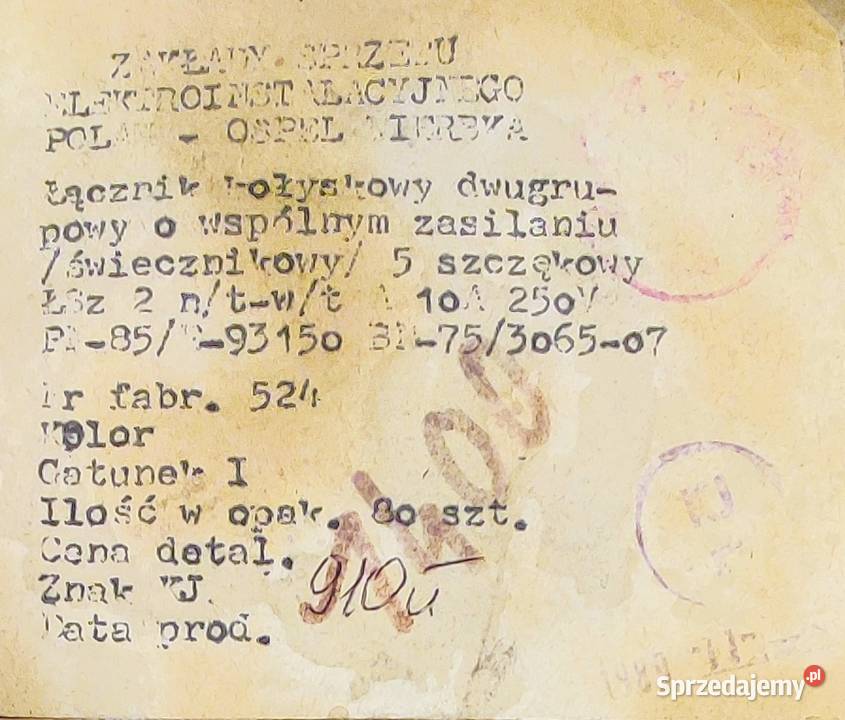 ZAKŁADY SPRZĘTU
ELEKTROINSTALACYJNEGO
POLAM - OSPEL WIERBKA
Łącznik kołyskowy dwugru-
powy o wspólnym zasilaniu
/świecznikowy/ 5 szczękowy
ŁSz 2 n/t-w/t A 10A 250V
PN-85/E-93150 BN-75/3065-07
Nr fabr. 524
Kolor
Gatunek I
Ilość w opak. 80 szt.
Cena detal.
910
1400
Znak KJ
Data prod.
KJ
Sprzedajemy.pl